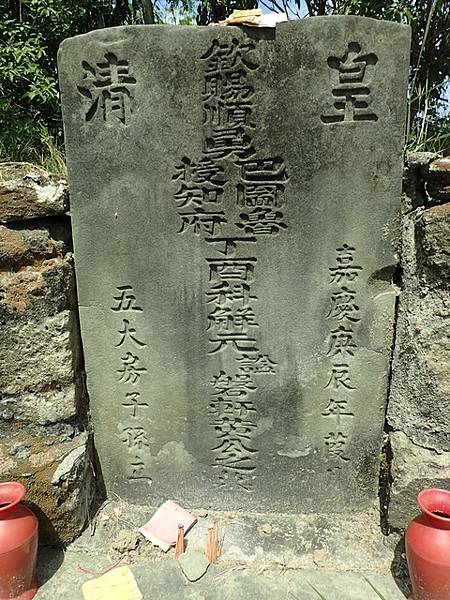 皇清
嘉慶庚辰年
欽賜順勇
巴圖魯
授知府
丁酉科解元諡磐軒黃公之
五大房子孫立